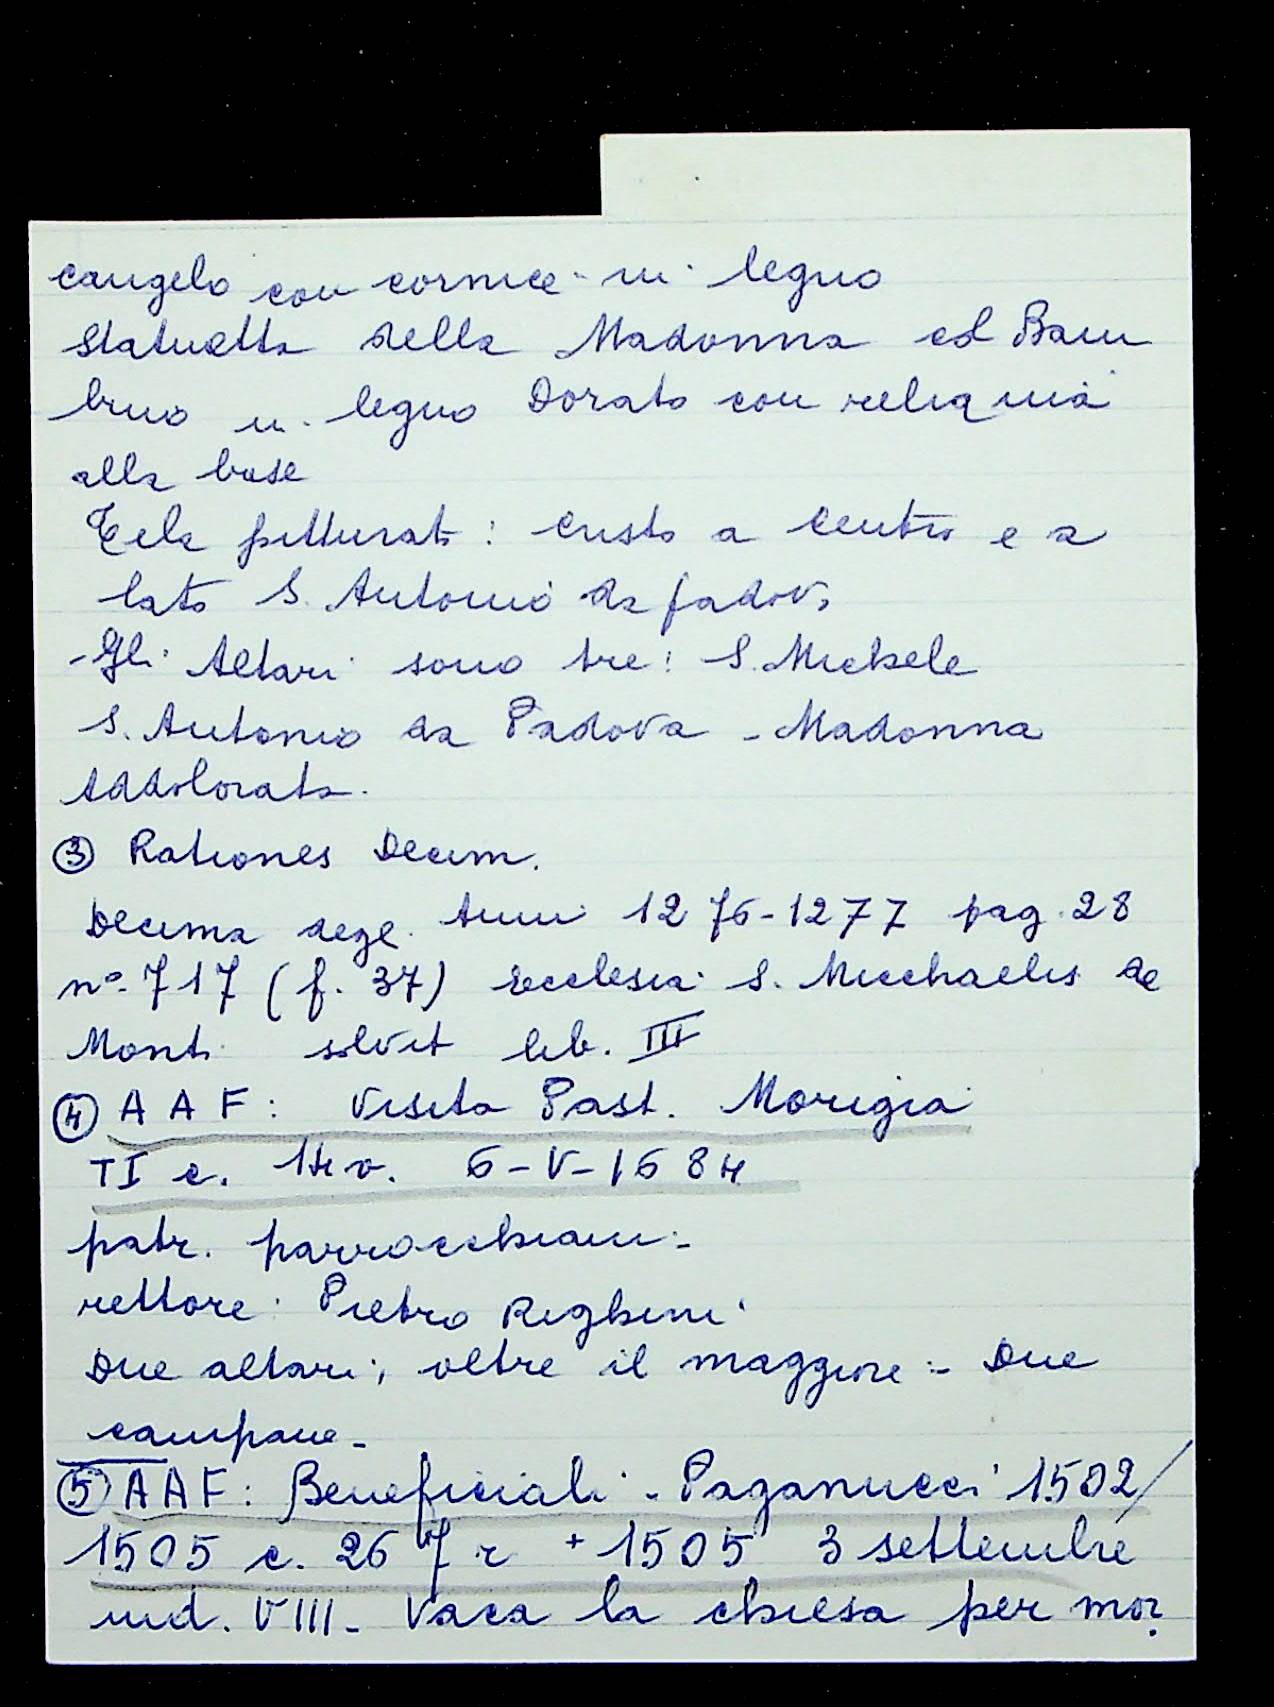 cangelo con cornice in legno
statuetta della Madonna col Bam
bino in legno Dorato con reliquia
alla base
Tela pitturata: Cristo a centro e a
lato S. Antonio da padova
- Gli Altari sono tre: S. Michele
S. Antonio da Padova - Madonna
Addolorata.
③ Rationes Decim.
Decima degl. Anni 1276-1277 pag. 28
n° 717 (f. 37) Ecclesia S. Micchaelis de
Monti solvit lib. III
④ A A F: Visita Past. Morigia
TI c. 14v. 6-V-1684
patr. parrocchiani -
rettore: Pietro Righini
Due altari, oltre il maggiore - Due
campane -
⑤ A A F: Beneficiali - Paganucci 1502/
1505 c. 267 r + 1505 3 settembre
ind. VIII - Vaca la chiesa per mor